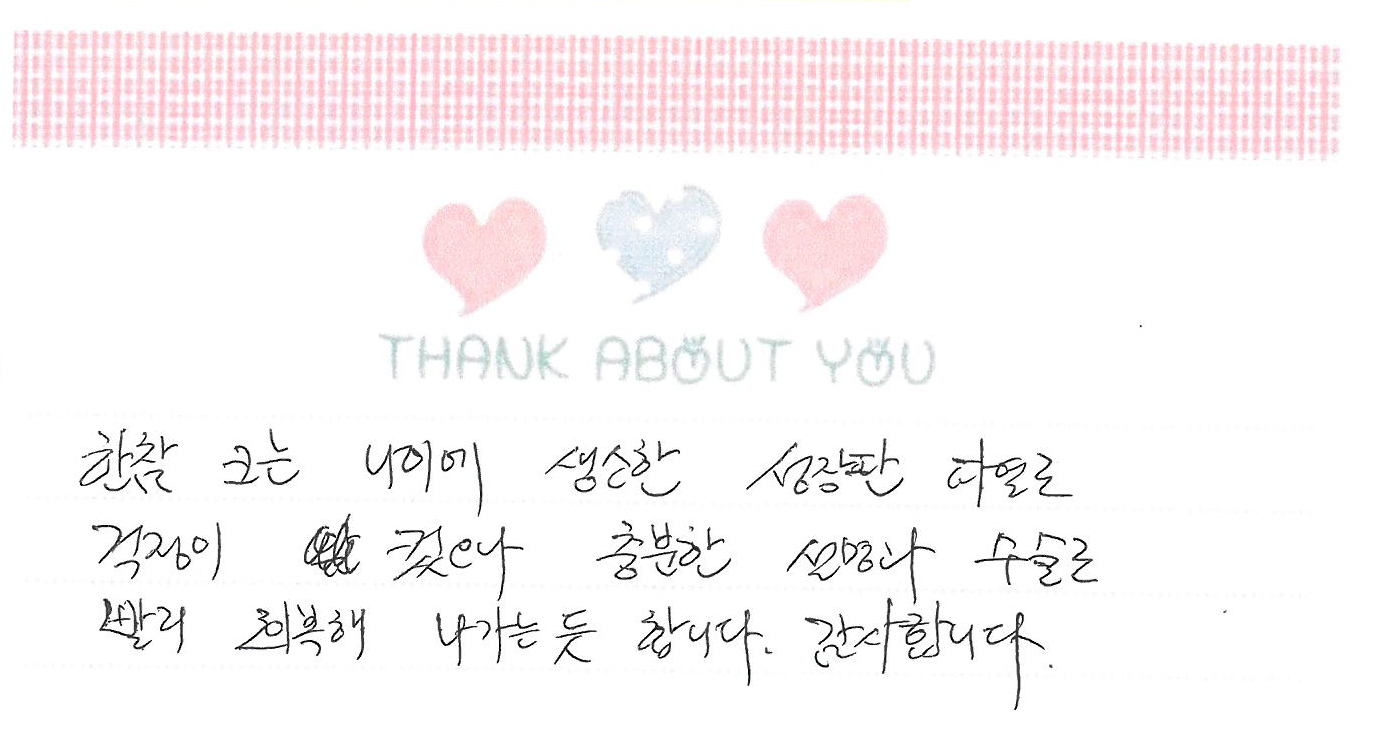 THANK ABOUT YOU
한참 크는 나이에 생소한 성장판 파열로
걱정이 컸으나 충분한 설명과 수술로
빨리 회복해 나가는듯 합니다. 감사합니다.